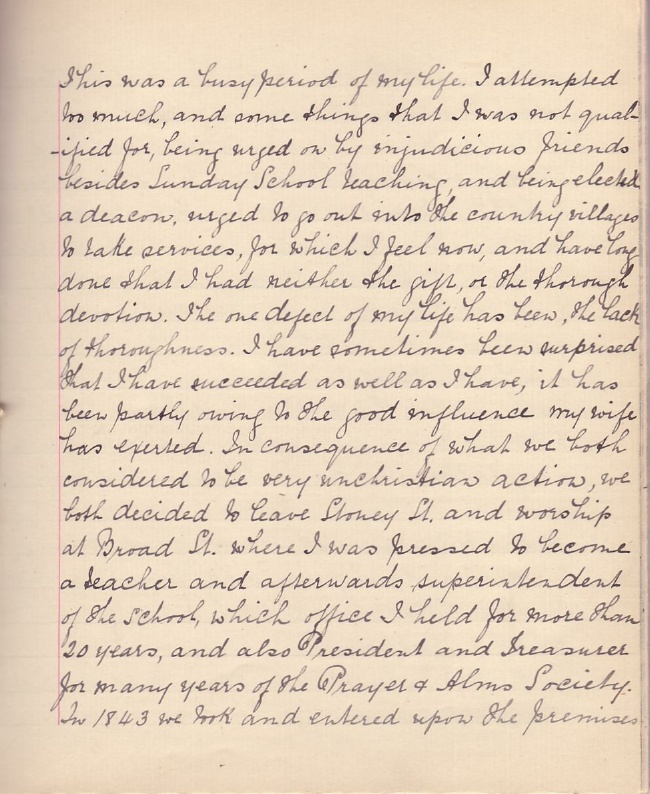 This was a busy period of my life. I attempted
too much, and some things that I was not qual-
-ified for, being urged on by injudicious friends
besides Sunday School teaching, and being elected
a deacon, urged to go out into the country villages
to take services, for which I feel now, and have long
done that I had neither the gift, or the thorough
devotion. The one defect of my life has been, the lack
of thoroughness. I have sometimes been surprised
that I have succeeded as well as I have, it has
been partly owing to the good influence my wife
has exerted. In consequence of what we both
considered to be very unchristian action, we
both decided to leave Stoney St. and worship
at Broad St. where I was pressed to become
a teacher and afterwards superintendent
of the school, which office I held for more than
20 years, and also President and Treasurer
for many years of the Prayer & Alms Society.
In 1843 we took and entered upon the premises